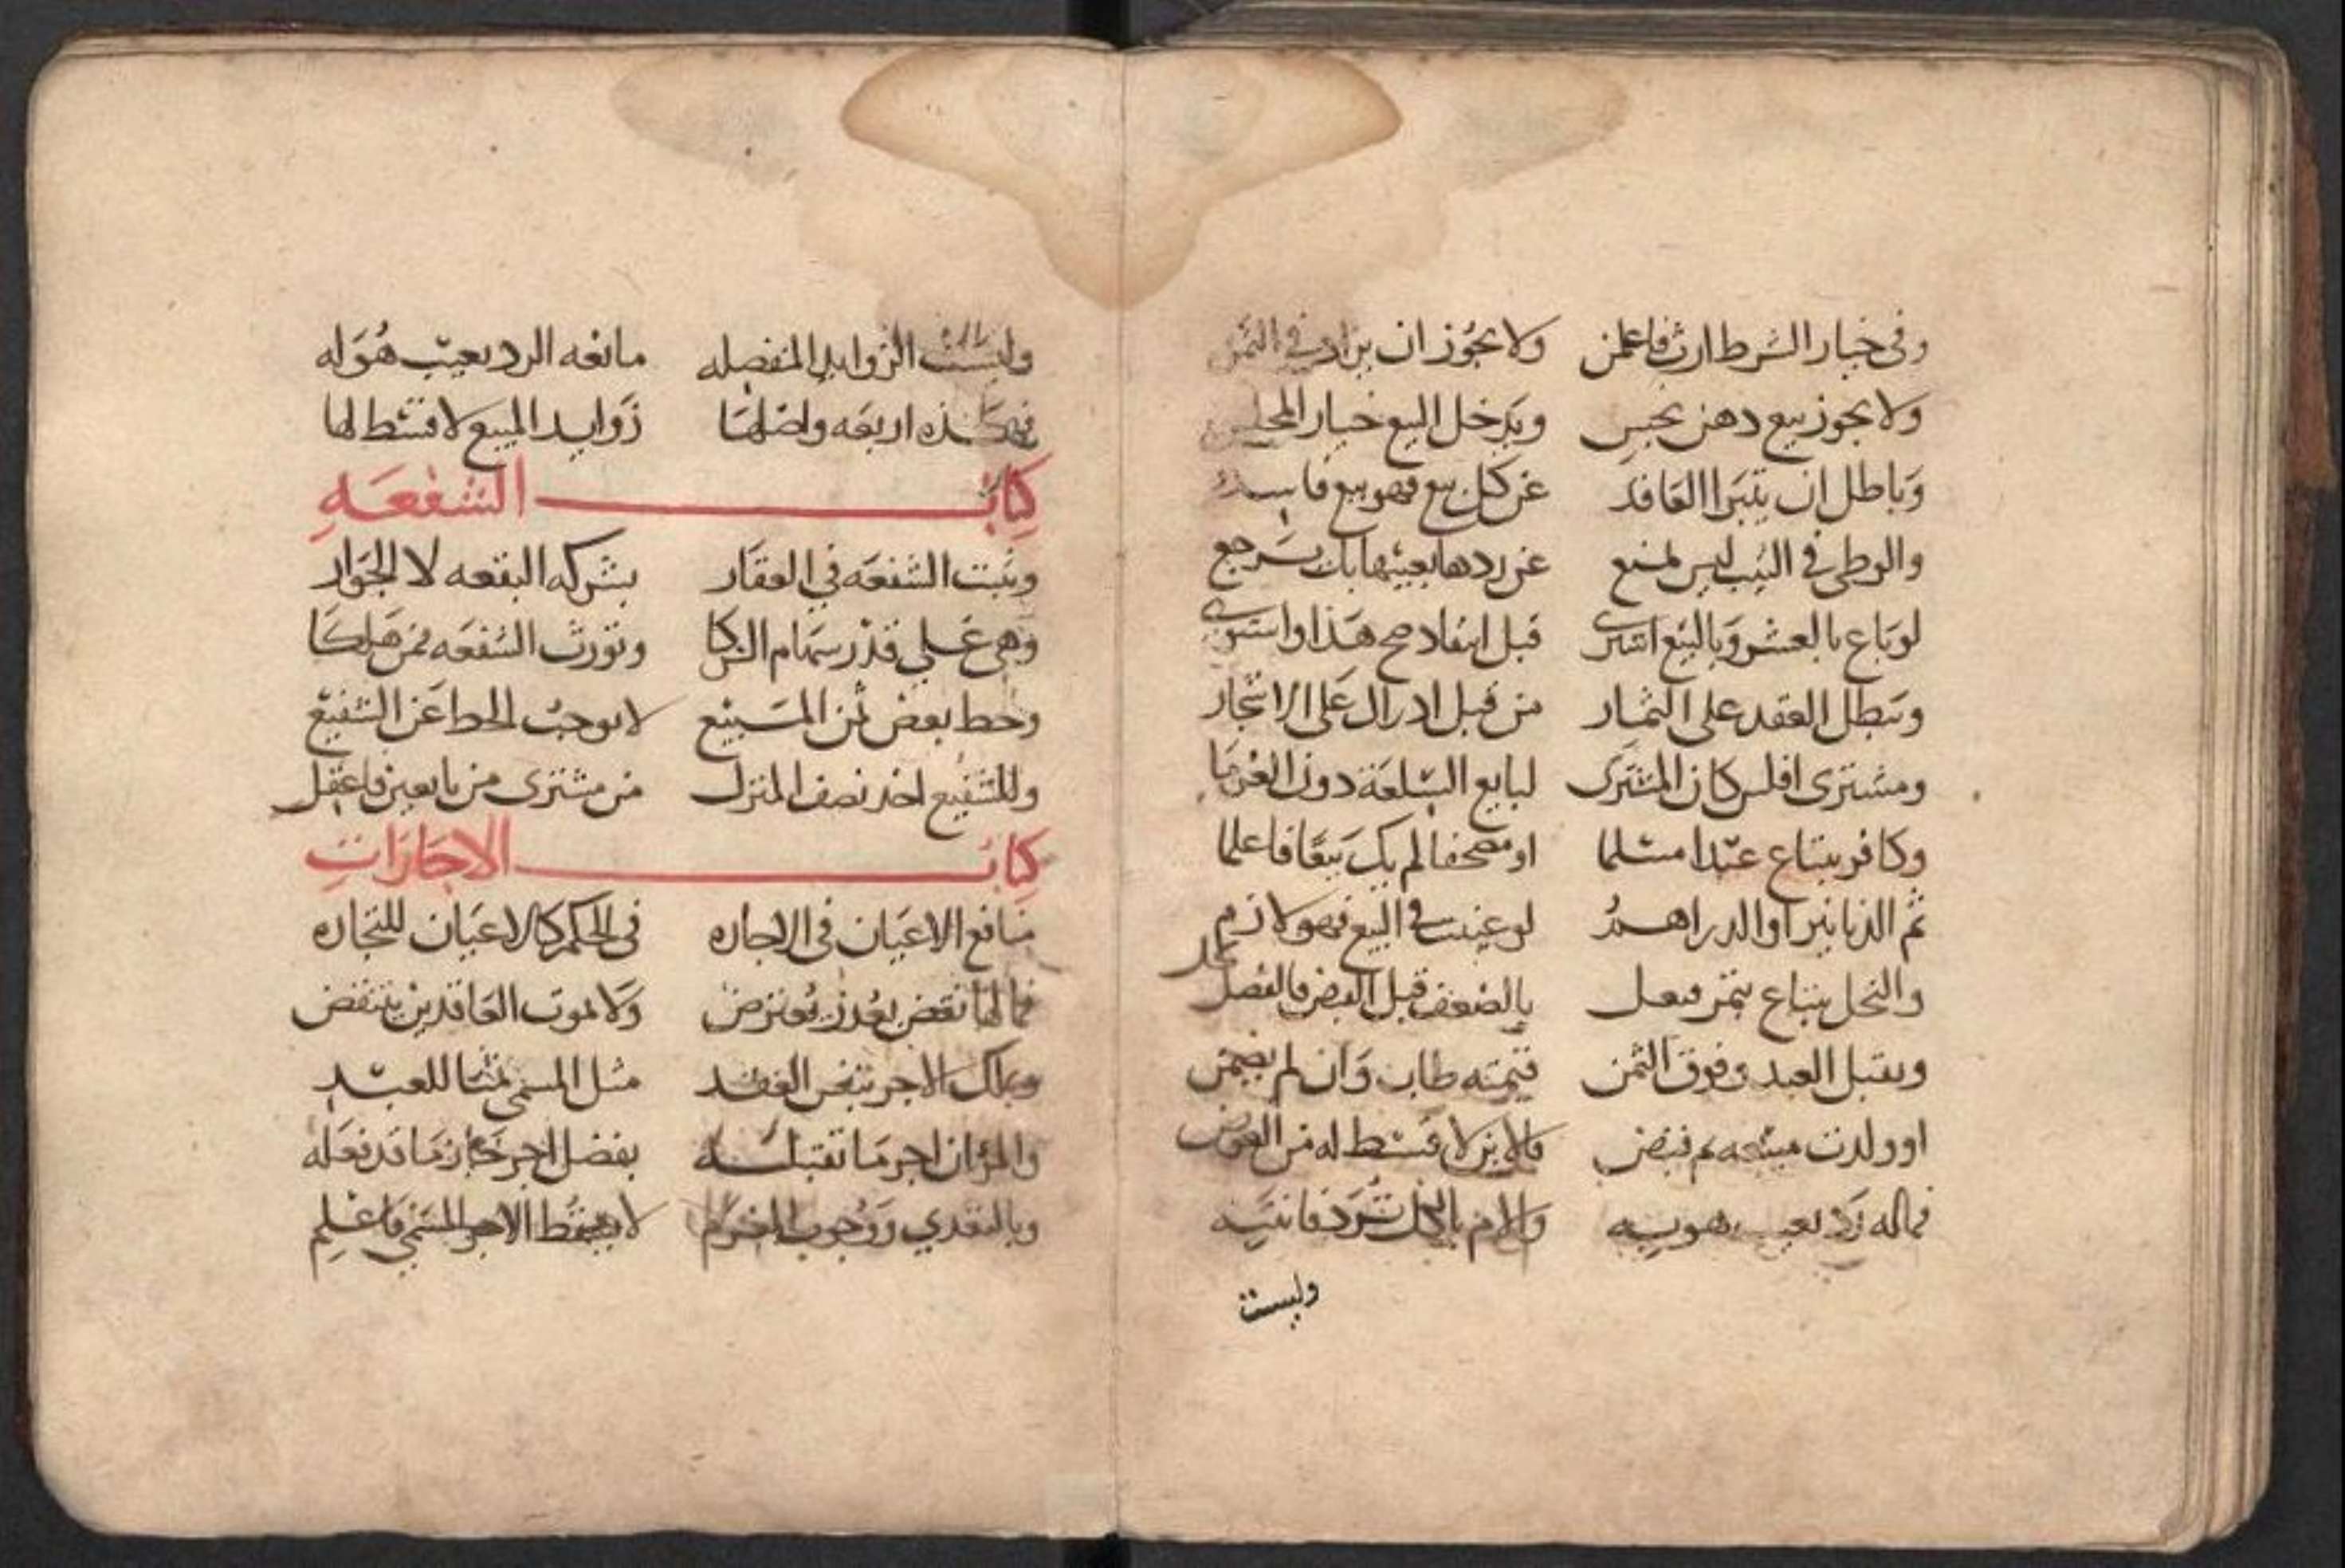 وفى خيار الشرط ارث فاعلمن ولا يجوز ان يزاد في الثمن
ولا يجوز بيع دهن نجس ويدخل البيع خيار المجلس
وباطل ان يتبرا العاقد عن كل بيع فهو بيع فاسد
والوطى في الثيب ليس يمنع عن ردها بعيبها بل يسترجع
لو باع بالعشر وبالتسع اشترى قبل انتقاد صح هذا واستوى
وتبطل العقد على الثمار من قبل ادراك على الاشجار
ومشترى افلس كان المشترى لبايع السلعة دون الغرما
وكافر يبتاع عبدا مسلما او مصحفا لم يك بيعا فاعلما
ثم الدنانير او الدراهم لو عينت في البيع فهو لازم
والنخل يبتاع بتمر فعل بالضعف قبل القبض فالفضل
ويقتل العبد وفوق الثمن قيمته طاب وان لم يضمن
او ولدت مبيعه لم تقبض فالابن لا قسط له من العوض
فماله رد بعيب هو به والام بالكل ترد فانتبه
وليست
وليست الزوايد المنفصله مانعه الرد بعيب هو له
فهكذه اربعه واصلها زوايد المبيع لا قسط لها
كتاب الشفعه
وتبت الشفعه في العقار بشركه البقعه لا الجوار
وهي على قدر سهام الشركا وتورث الشفعه ممن هلكا
وحط بعض ثمن المبيع لا يوجب الحط عن الشفيع
وللشفيع اخذ نصف المنزل من مشترى من بايعين فاعقل
كتاب الاجارات
منافع الاعيان في الاجاره فى الحكم كالاعيان للتجاره
فمالها نقض بعذر يعترض ولا بموت العاقدين ينتقض
ويملك الاجر بنفس العقد مثل المسمى ثمنا للعبد
والمؤ ان اجر ما تقبله بفضل اجر جاز ما قد فعله
وبالتعدي ووجوب الغرم لا يسقط الاجر المسمى فاعلم